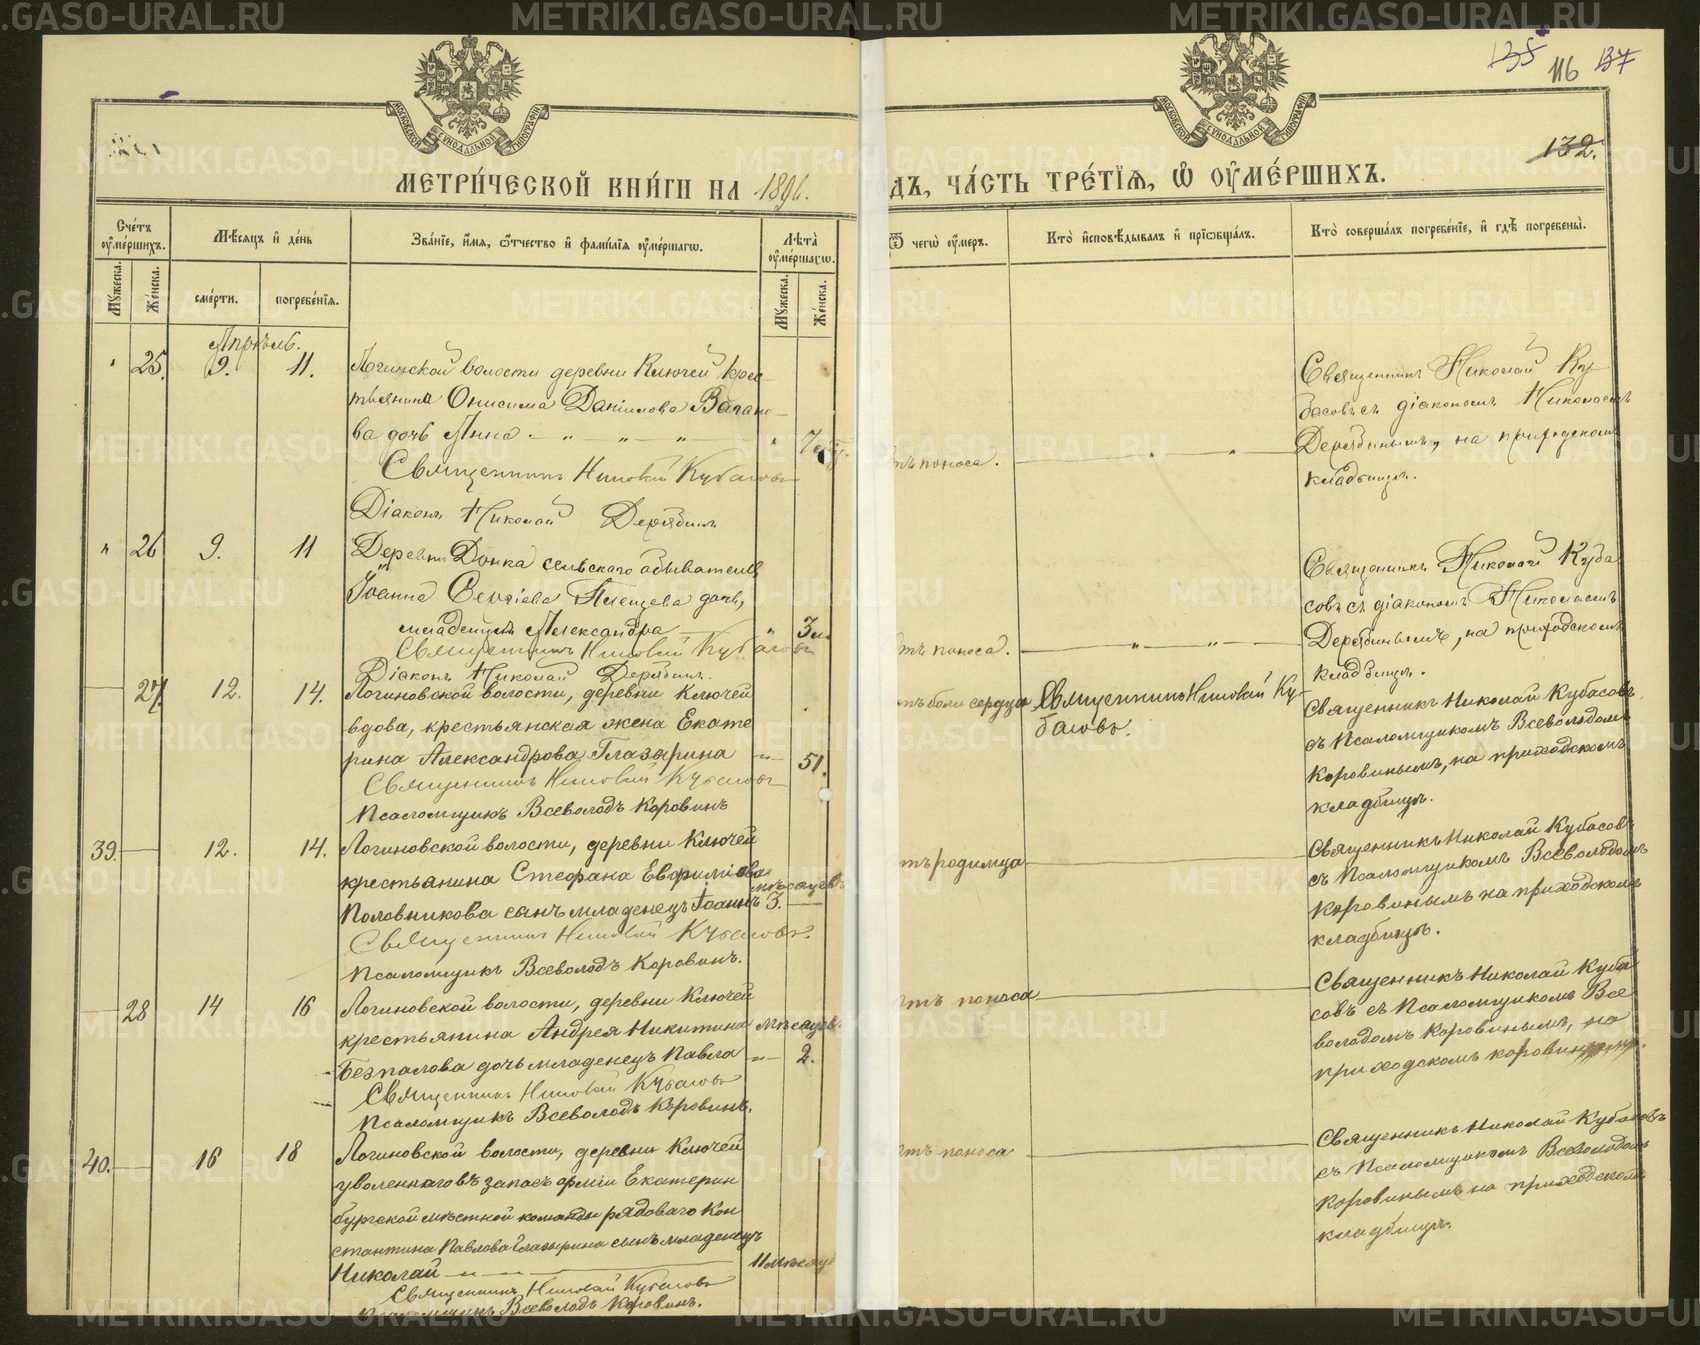 METRIKI.GASO-URAL.RU
135 116 137
132.
МОСКОВСКОЙ СѴНОДАЛЬНОЙ ТИПОГРАФІИ
МОСКОВСКОЙ СѴНОДАЛЬНОЙ ТИПОГРАФІИ
МЕТРИ́ЧЕСКОЙ КНИ́ГИ НА 1896.
ДЪ, ЧА́СТЬ ТРЕ́ТЇѦ, Ѡ ОУ҆МЕ́РШИХЪ.
Сче́тъ оу҆ме́ршихъ.
Мѣ́сяцъ и҆ де́нь
Зва́нїе, и҆́мѧ, ѻ҆́тчество и҆ фамилїѧ оу҆ме́ршагѡ.
Лѣ́та оу҆ме́ршагѡ.
Ѿ чегѡ̀ оу҆́меръ.
Кто̀ и҆сповѣ́дывалъ и҆ прїѡбща́лъ.
Кто̀ соверша́лъ погребе́нїе, и҆ гдѣ̀ погребены̀.
Мꙋ́жеска.
Же́нска.
сме́рти.
погребе́нїѧ.
Мꙋ́жеска.
Же́нска.
Апрѣль.
" 25. 9. 11. Логинской волости деревни Ключей крес-
тьянина Онисима Даніилова Вагано-
ва дочь Анна - " - " - " " 7
Священникъ Николай Кубасовъ
Діаконъ Николай Дерябинъ
тъ поноса. " "
Священникъ Николай Ку-
басовъ съ діакономъ Николаемъ
Дерябинымъ, на приходскомъ
кладбищѣ.
" 26 9. 11 Деревни Донка сельскаго обывателя
Іоанна Сергіева дочь,
младенецъ Александра " 3м
Священникъ Николай Кубасовъ
Діаконъ Николай Дерябинъ.
тъ поноса. " "
Священникъ Николай Куба
совъ съ діакономъ Николаемъ
Дерябинымъ, на приходскомъ
кладбищѣ.
27. 12. 14. Логиновской волости, деревни Ключей
вдова, крестьянская жена Екате
рина Александрова Глазырина -"- 51.
Священникъ Николай Кубасовъ
Псаломщикъ Всеволодъ Коровинъ
тъ боли сердца
Священникъ Николай Ку-
басовъ.
Священникъ Николай Кубасовъ
съ Псаломщикомъ Всеволодомъ
Коровинымъ, на приходскомъ
кладбищѣ.
39. 12. 14. Логиновской волости, деревни Ключей
крестьянина Стефана Евфиміева
мѣсяцевъ
Половникова сынъ младенецъ Іоаннъ 3.
Священникъ Николай Кубасовъ.
Псаломщикъ Всеволодъ Коровинъ.
тъ родимца
Священникъ Николай Кубасовъ
съ Псаломщикомъ Всеволодомъ
Коровинымъ на приходскомъ
кладбищѣ.
28 14 16 Логиновской волости, деревни Ключей
крестьянина Андрея Никитина мѣсяцев
Безпалова дочь младенецъ Павла -"- 2.
Священникъ Николай Кубасовъ
Псаломщикъ Всеволодъ Коровинъ.
тъ поноса
Священникъ Николай Куба
совъ съ Псаломщикомъ Все
володомъ Коровинымъ, на
приходскомъ
40. 16 18 Логиновской волости, деревни Ключей
уволеннаго въ запасъ арміи Екатерин
бургской мѣстной команды рядоваго Кон
стантина Павлова Глазырина сынъ младенецъ
Николай 11 мѣсяц
Священникъ Николай Кубасовъ
Псаломщикъ Всеволодъ Коровинъ.
тъ поноса
Священникъ Николай Кубасовъ
съ Псаломщикомъ Всеволодомъ
Коровинымъ на приходскомъ
кладбищѣ.